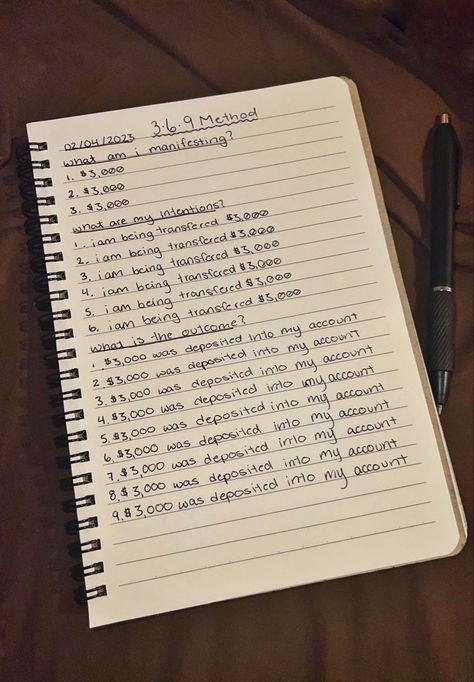 3·6·9 Method
02/04/2023
what am i manifesting?
1. $3,000
2. $3,000
3. $3,000
what are my intentions?
1. i am being transfered $3,000
2. i am being transfered $3,000
3. i am being transfered $3,000
4. i am being transfered $3,000
5. i am being transfered $3,000
6. i am being transfered $3,000
what is the outcome?
1. $3,000 was deposited into my account
2. $3,000 was deposited into my account
3. $3,000 was deposited into my account
4. $3,000 was deposited into my account
5. $3,000 was deposited into my account
6. $3,000 was deposited into my account
7. $3,000 was deposited into my account
8. $3,000 was deposited into my account
9. $3,000 was deposited into my account